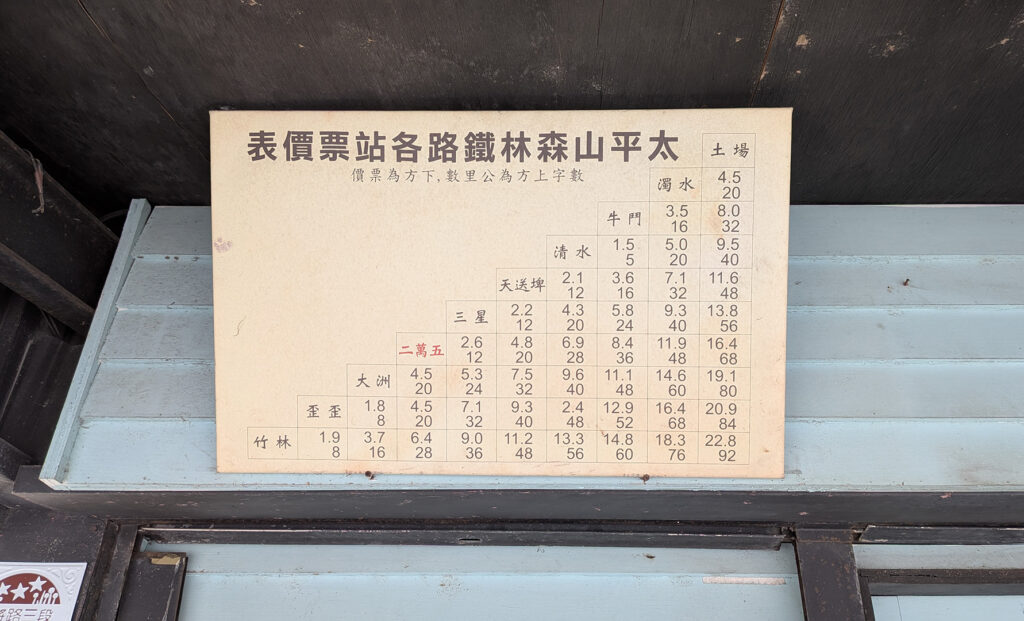 太平山森林鐵路各站票價表
數字上方為公里數,下方為票價
土場
濁水 4.5
20
牛鬥 3.5 8.0
16 32
清水 1.5 5.0 9.5
5 20 40
天送埤 2.1 3.6 7.1 11.6
12 16 32 48
三星 2.2 4.3 5.8 9.3 13.8
12 20 24 40 56
二萬五 2.6 4.8 6.9 8.4 11.9 16.4
12 20 28 36 48 68
大洲 4.5 5.3 7.5 9.6 11.1 14.6 19.1
20 24 32 40 48 60 80
歪歪 1.8 4.5 7.1 9.3 2.4 12.9 16.4 20.9
8 20 32 40 48 52 68 84
竹林 1.9 3.7 6.4 9.0 11.2 13.3 14.8 18.3 22.8
8 16 28 36 48 56 60 76 92
路三段